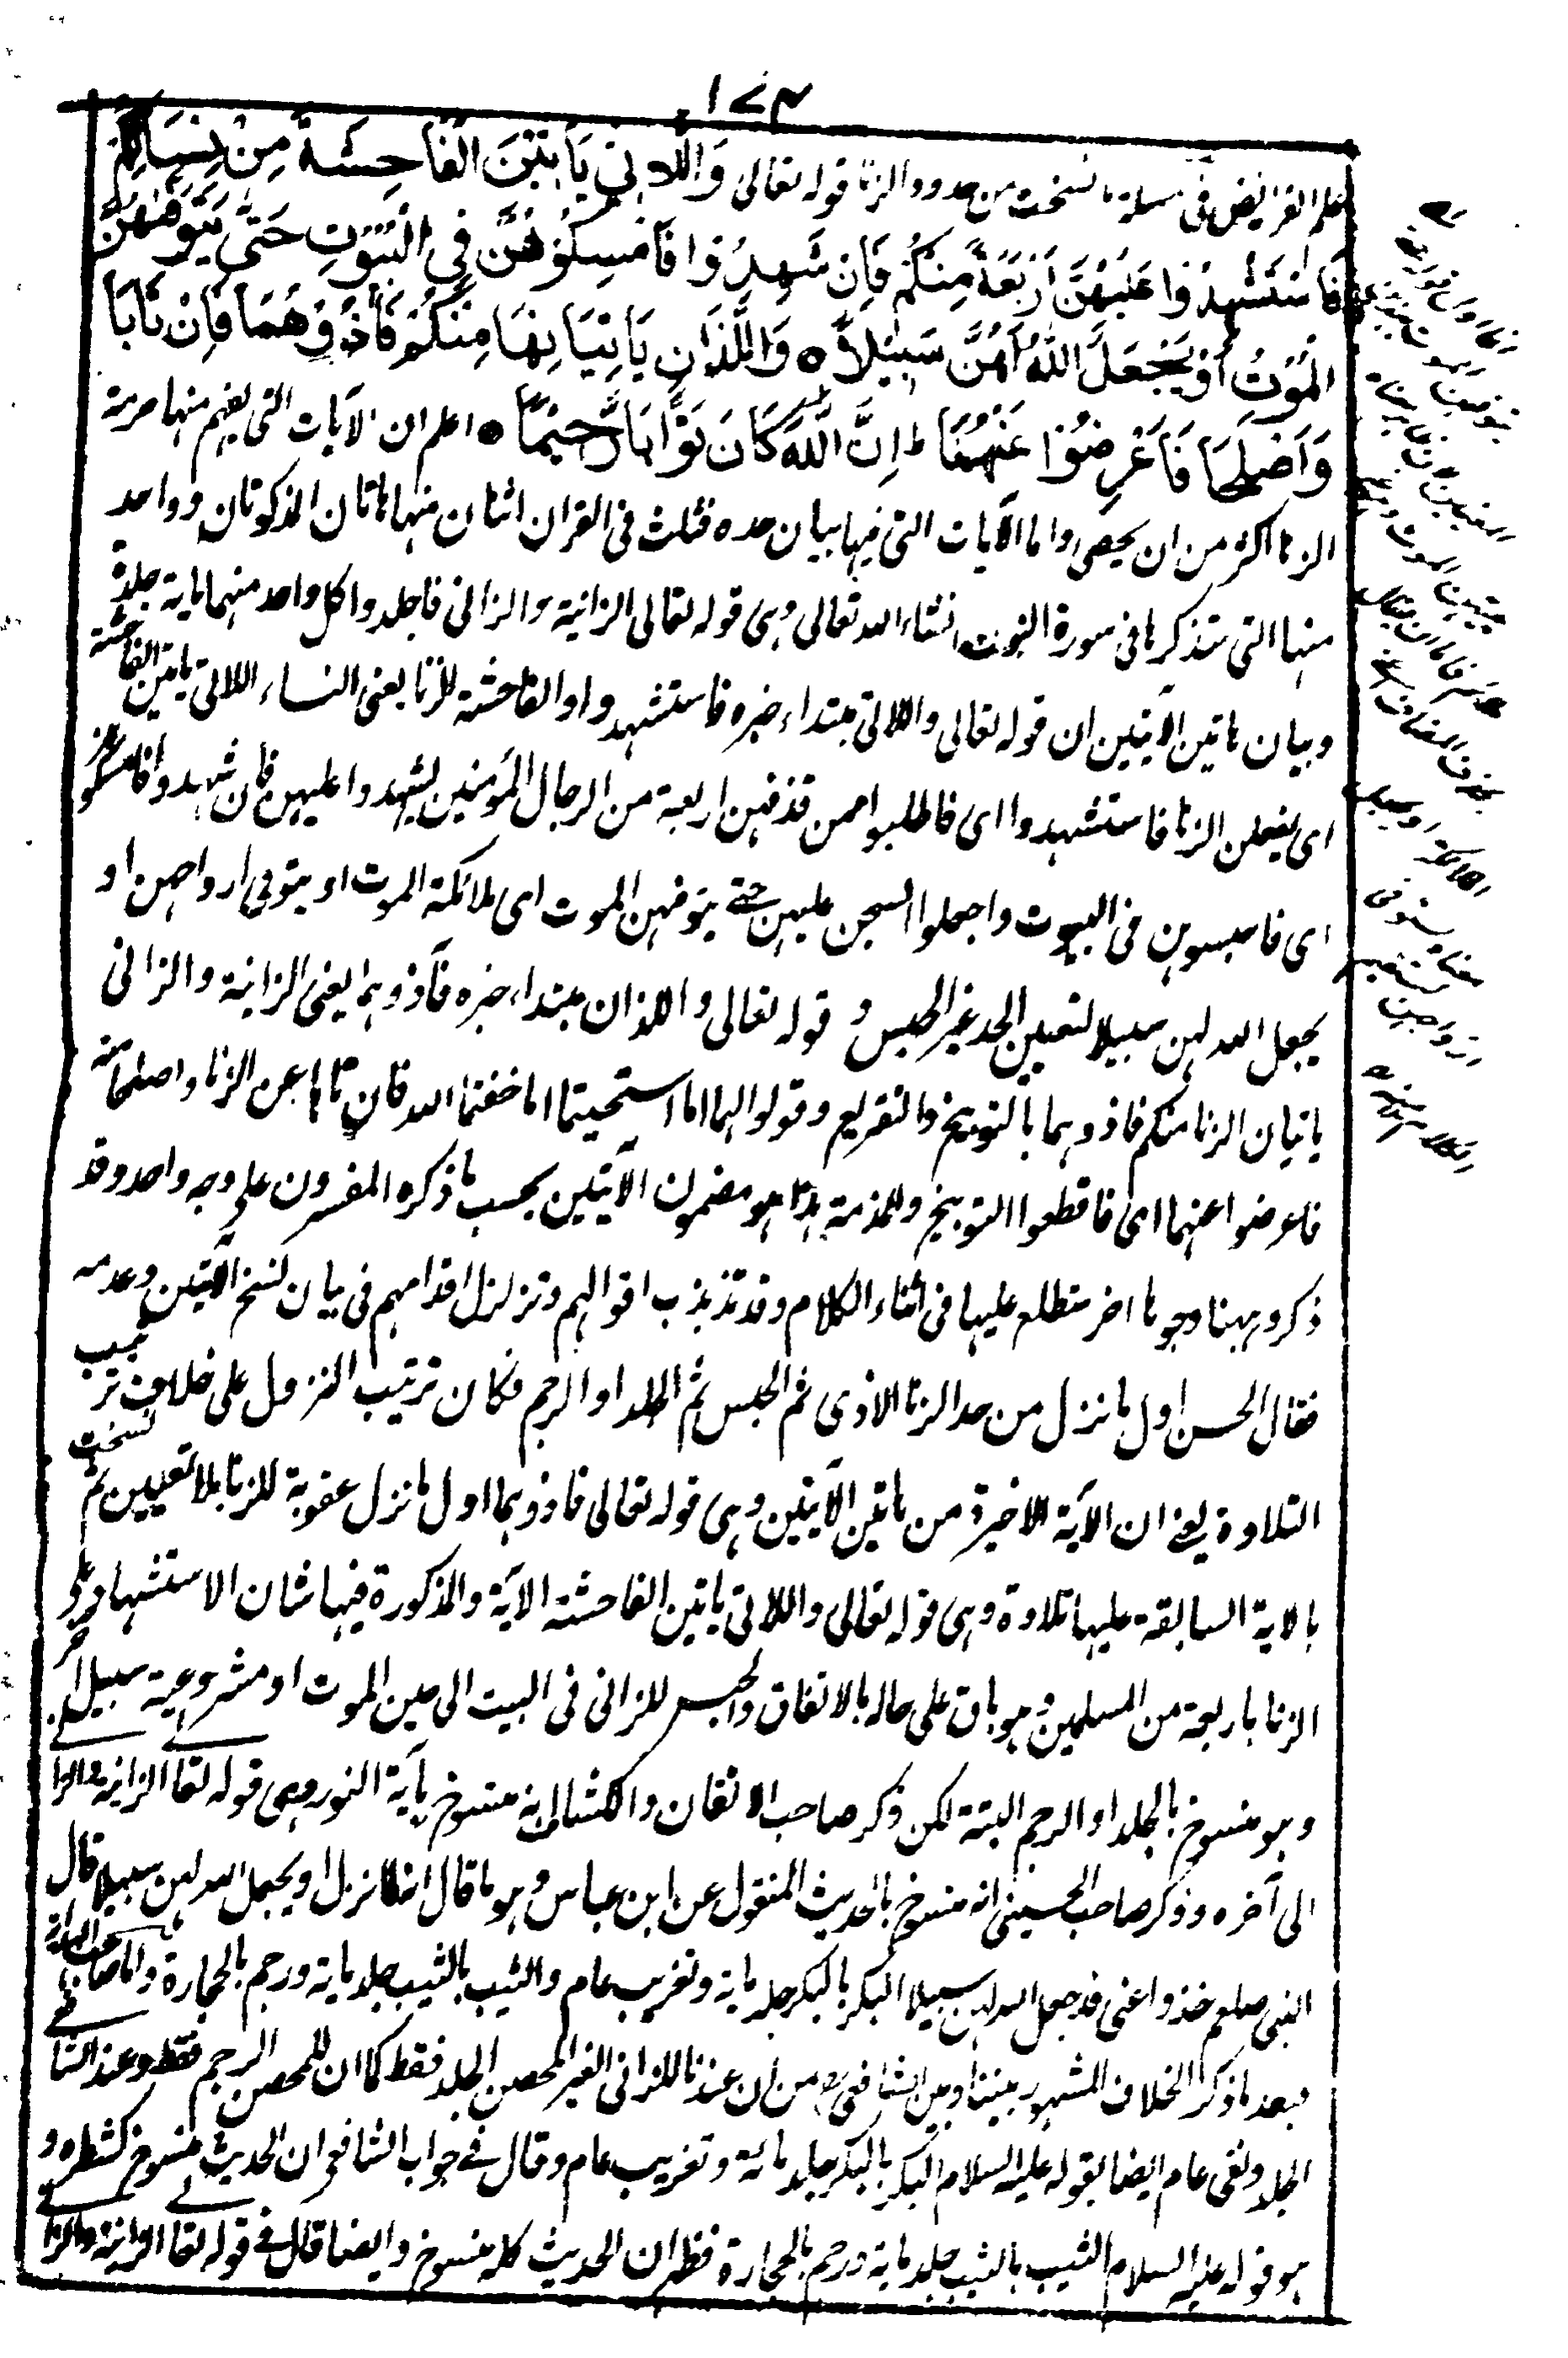 ١٧٣
علم الفرايض فى مسئلة ما نسخت من حدود الزنا قوله تعالى وَاللَّاتِي يَأْتِينَ الْفَاحِشَةَ مِنْ نِسَائِكُمْ
فَاسْتَشْهِدُوا عَلَيْهِنَّ أَرْبَعَةً مِنْكُمْ فَإِنْ شَهِدُوا فَأَمْسِكُوهُنَّ فِي الْبُيُوتِ حَتَّى يَتَوَفَّهُنَّ
الْمَوْتُ أَوْ يَجْعَلَ اللَّهُ لَهُنَّ سَبِيلًا ○ وَالَّذَانِ يَأْتِيَانِهَا مِنْكُمْ فَآذُوهُمَا فَإِنْ تَابَا
وَأَصْلَحَا فَأَعْرِضُوا عَنْهُمَا ط إِنَّ اللَّهَ كَانَ تَوَّابًا رَحِيمًا ○ اعلم ان الآيات التى يفهم منها حرمة
الزنا اكثر من ان يحصى واما الآيات التى فيها بيان حده فثلث فى القران اثنان منها هاتان المذكورتان وواحد
منها التى ستذكرها فى سورة النور انشاء الله تعالى وهى قوله تعالى الزانية والزانى فاجلدوا كل واحد منهما ماية جلدة
وبيان هاتين الآيتين ان قوله تعالى واللاتى مبتداء خبره فاستشهدوا والفاحشة الزنا يعنى النساء اللاتى ياتين الفاحشة
اى يفعلن الزنا فاستشهدوا اى فاطلبوا ممن قذفهن اربعة من الرجال المؤمنين ليشهدوا عليهن فان شهدوا فامسكوهن
اى فاحبسوهن فى البيوت واجعلوا السجن عليهن حتى يتوفهن الموت اى ملائكة الموت او يتوفى ارواحهن او
يجعل الله لهن سبيلا لتعيين الحد غير الحبس و قوله تعالى واللذان مبتداء خبره فآذوهما يعنى الزانية والزانى
ياتيان الزنا منكم فاذوهما بالتوبيخ والتقريع وقولوا لهما اما استحييتما اما خفتما الله فان تابا عن الزنا واصلحا
فاعرضوا عنهما اى فاقطعوا التوبيخ والمذمة هذا هو مضمون الآيتين بحسب ما ذكره المفسرون على وجه واحد وقد
ذكروا ههنا وجوها اخر ستطلع عليها فى اثناء الكلام وقد تذبذب اقوالهم وتزلزل اقدامهم فى بيان نسخ الآيتين وعدمه
فقال الحسن اول ما نزل من حد الزنا الاذى ثم الحبس ثم الجلد او الرجم فكان ترتيب النزول على خلاف ترتيب
التلاوة يعنى ان الآية الاخيرة من هاتين الآيتين وهى قوله تعالى فاذوهما اول ما نزل عقوبة للزنا بلا تعيين ثم نسخت
بالاية السابقة عليها تلاوة وهى قوله تعالى واللاتى ياتين الفاحشة الاية والمذكورة فيها شان الاستشهاد على
الزنا باربعة من المسلمين وهو باق على حاله بالاتفاق والحبس للزانى فى البيت الى حين الموت او مشروعية سبيل آخر
وهو منسوخ بالجلد او الرجم البتة لكن ذكر صاحب الاتقان والكشاف انه منسوخ بآية النور وهى قوله تعالى الزانية والزانى
الى آخره وذكر صاحب الحسينى انه منسوخ بالحديث المنقول عن ابن عباس وهو ما قال انه لما نزل او يجعل الله لهن سبيلا قال
النبى صلعم خذوا عنى قد جعل الله لهن سبيلا البكر بالبكر جلد ماية وتغريب عام والثيب بالثيب جلد ماية ورجم بالحجارة واما صاحب الهداية
فبعد ما ذكر الخلاف المشهور بيننا وبين الشافعى من ان عندنا للزانى الغير المحصن الجلد فقط كما ان للمحصن الرجم فقط وعند الشافعى
الجلد ونفى عام ايضا بقوله عليه السلام البكر بالبكر جلد مائة وتغريب عام وقال فى جواب الشافعى ان الحديث منسوخ كشطره و
هو قوله عليه السلام الثيب بالثيب جلد ماية ورجم بالحجارة فظهر ان الحديث كله منسوخ وايضا قال فى قوله تعالى الزانية والزانى